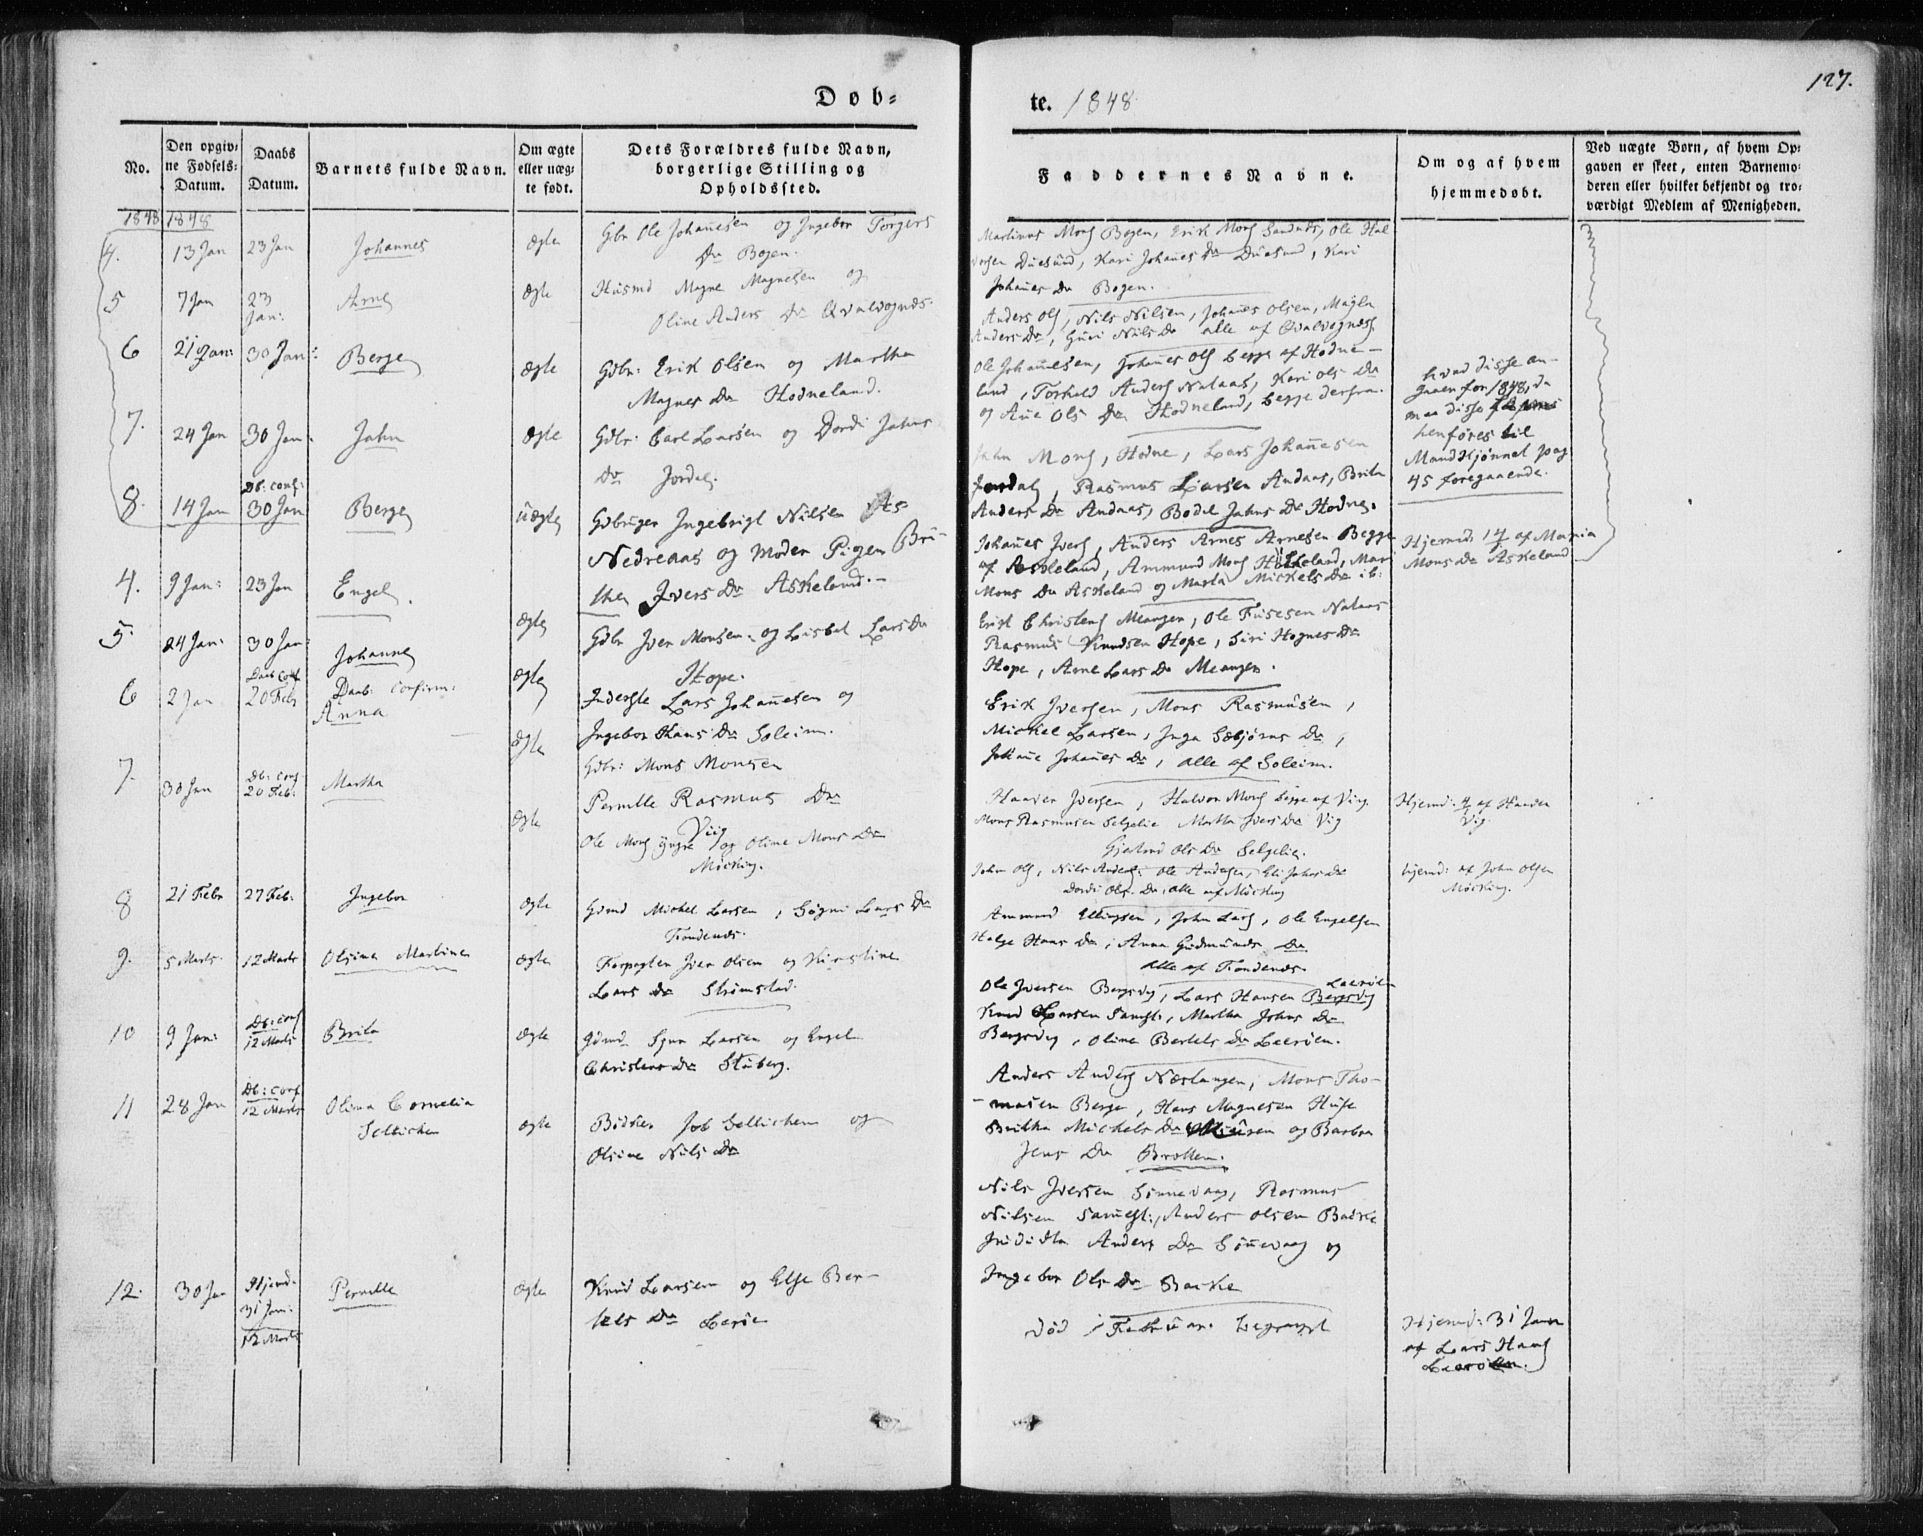 Døb-
te. 1848
127.
No.
Den opgiv-
ne Fødsels-
Datum.
Daabs
Datum.
Barnets fulde Navn.
Om ægte
eller uæg-
te født.
Dets Forældres fulde Navn,
borgerlige Stilling og
Opholdssted.
Faddernes Navne.
Om og af hvem
hjemmedøbt.
Ved uægte Børn, af hvem Op-
gaven er skeet, enten Barnemo-
deren eller hvilket bekjendt og tro-
værdigt Medlem af Menigheden.
1848 1848
4. 13 Jan 23 Jan Johannes Ægte
Gbr Ole Johannesen og Ingebor Torgers
Dr Bogen.
Martinus Mons Bogen, Erik Mons Sandnes, Ole Hal
vorsen Duesund, Kari Johanes Dr Duesund, Kari
Johanes Dr Bogen.
5 7 Jan 23 Jan: Arne Ægte
Husmd Magne Magnesen og
Oline Anders Dr Qvalvognæs.
Anders Ols, Nils Nilsen, Johanes Olsen, Magla
Anders Dr, Guri Nils Dr alle af Qvalvognæs
6 21 Jan: 30 Jan: Berge Ægte
Gdbr: Erik Olsen og Martha
Magnes Dr Hodneland.
Ole Johannesen, Johanes Ols begge af Hodne-
land, Torkeld Anders Nataas, Kari Ols Dr
og Ane Ols Dr Hodneland, begge derfra.
hvad disse an-
gaaer for 1848, da
maa disse
henføres til
Mandkjønnet pag
45 foregaaende.
7. 24 Jan 30 Jan. Jahn Ægte
Gdbr: Carl Larsen og Dordi Jahns
Dr Jordal.
Jahn Mons, Hodne, Lars Johannesen
Jordal, Rasmus Larsen Andaas, Brita
Anders Dr Andaas, Bodil Jahns Dr Hodne.
8. 14 Jan Db: conf: 30 Jan Berge Uægte
Gdbruger Ingebrigt Nilsen As-
Nedreaas og Moder Pigen Bri-
the Ivers Dr Askeland.-
Johanes Ivers, Anders Arnes Arnesen Begge
af Askeland, Ammund Mons Hölleland, Mari
Mons Dr Askeland og Marta Mickels Dr ib:
Hjemd: af Maria
Mons Dr Askeland
4. 9 Jan: 23 Jan Engel. Ægte
Gdbr Iver Monsen og Lisbet Lars Dr
Hope.
Erik Christens Meangen, Ole Nataas
Rasmus Knudsen Hope, Siri Hognes Dr
Hope, Arne Lars Dr Meangen.
5. 24 Jan. 30 Jan: Johanne Ægte
Inderste Lars Johannesen og
Ingebor Hans Dr Soleim.
Erik Iversen, Mons Rasmusen,
Mickel Larsen, Inga Sæbjørns Dr,
Johane Johanes Dr, alle af Soleim.
6 2 Jan Daab Conf 20 Febr Daab: Confirm: Anna Ægte
Gdbr: Mons Monsen
Pernille Rasmus Dr
Viig
Haaver Iversen, Halvor Mons begge af Viig
Mons Rasmusen Selgelie Martha Ivers Dr Vig
Gjertrud Ols Dr Selgelie.
Hjemd: af Haaver
Vig.
7. 30 Jan Db: conf 20 Feb. Martha Ægte
Ole Mons yngre og Oline Mons Dr
Mörking.
John Ols, Nils Anders, Ole Andersen, Eli Johns Dr
Dordi Ols Dr, alle af Mörking
hjemd: af John Olsen
Mörking.
8 21 Febr 27 Feb: Ingebor Ægte
Gdmd Mickel Larsen, Søgni Lars Dr
Fondenæs.
Ammund Ellingsen, John Lars, Ole Engelsen
Helge Hans Dr, Anna Gudmunds Dr
alle af Fondenæs.
9. 5 Marts. 12 Marts Olsine Martine Ægte
Forpagter Iver Olsen og Kirstine
Lars Dr Strömstad.
Ole Iversen Bergsvig, Lars Hansen Bergsvig Leerölen
Knud Larsen, Martha Johns Dr
Bergsvig, Oline Bertels Dr Leeröen.
10 9 Jan: Db: conf 12 Marts Brita Ægte
Gdmd Sjur Larsen og Engel
Christens Dr Stüberg.
Anders Anders Næstangen, Mons Tho-
masen Berge, Hans Magnesen
Britha Mickels Dr og Barbra
Jens Dr Brotten.
11 28 Jan Db: Conf 12 Marts Olina Cornelia
Selliken Ægte
Bödker Job Selliken og
Olsine Nils Dr
Nils Iversen Sönnevaag, Rasmus
Nilsen, Anders Olsen Bakke
Anders Dr Sönnevaag og
Ingebor Ols Dr Bakke
12. 30 Jan Hjemd. 31 Jan: 12 Marts Pernille Ægte
Knud Larsen og Else Ber-
tels Dr Leröe
död i Februar. begravet
Hjemd: 31 Janr
af Lars Hans
Leeröen.